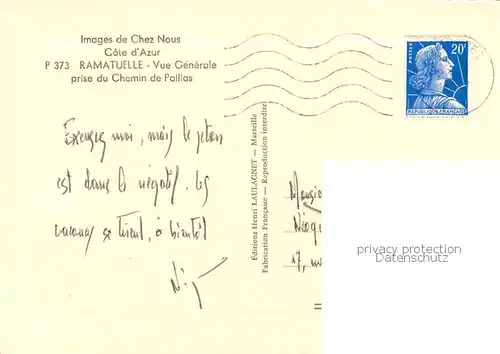 Images de Chez Nous
Côte d'Azur
P 373 RAMATUELLE - Vue Générale
prise du Chemin de Paillas
POSTES 20F
Excusez moi, mais le
est dans le négatif. Les
vacances se tirent, à bientôt
Éditions Henri LAULAGNET — Marseille
Fabrication Française — Reproduction interdite
Monsieur
17,
privacy protection
DATABASE